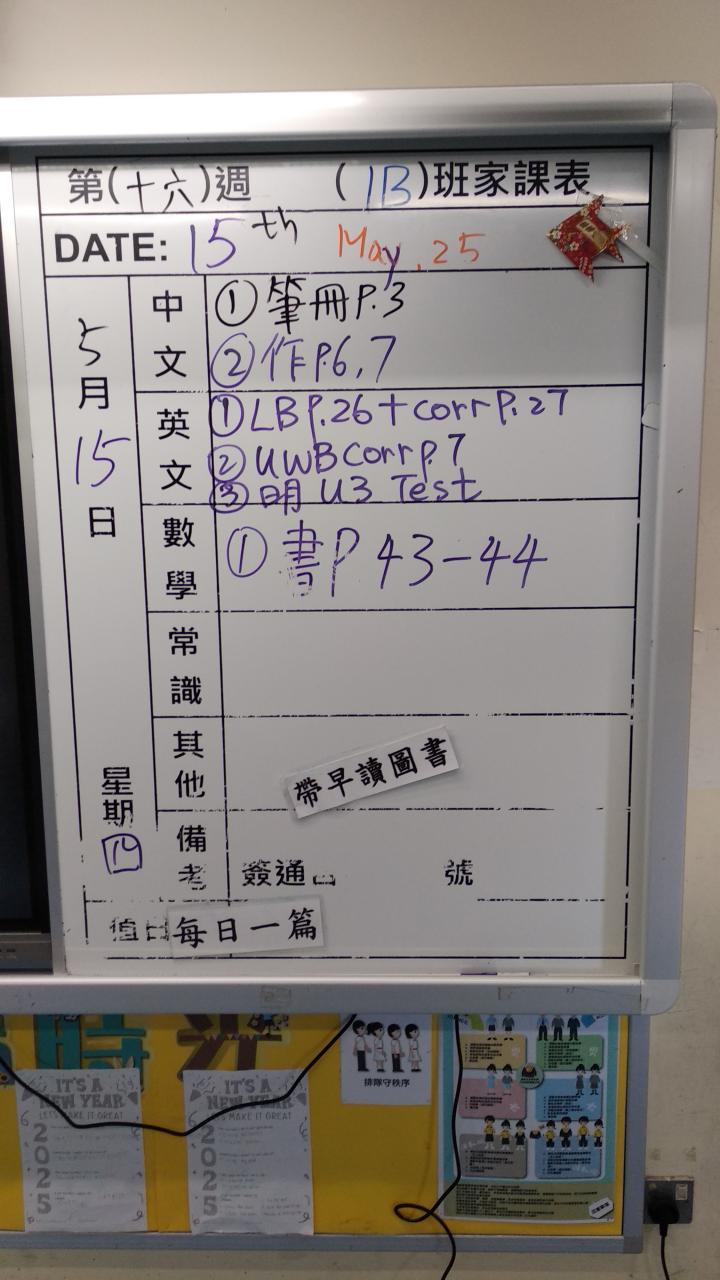 第(十六)週 (1B)班家課表
DATE: 15th May, 25
5月15日
星期四
中文
①筆冊P.3
②作P.6,7
英文
①LB P.26+corr P.27
②UWB corr p.7
③明 U3 Test
數學
①書P 43-44
常識
其他
帶早讀圖書
備考
簽通 號
值日
每日一篇
IT'S A
NEW YEAR
LET'S MAKE IT GREAT
2025
IT'S A
NEW YEAR
MAKE IT GREAT
2025
排隊守秩序